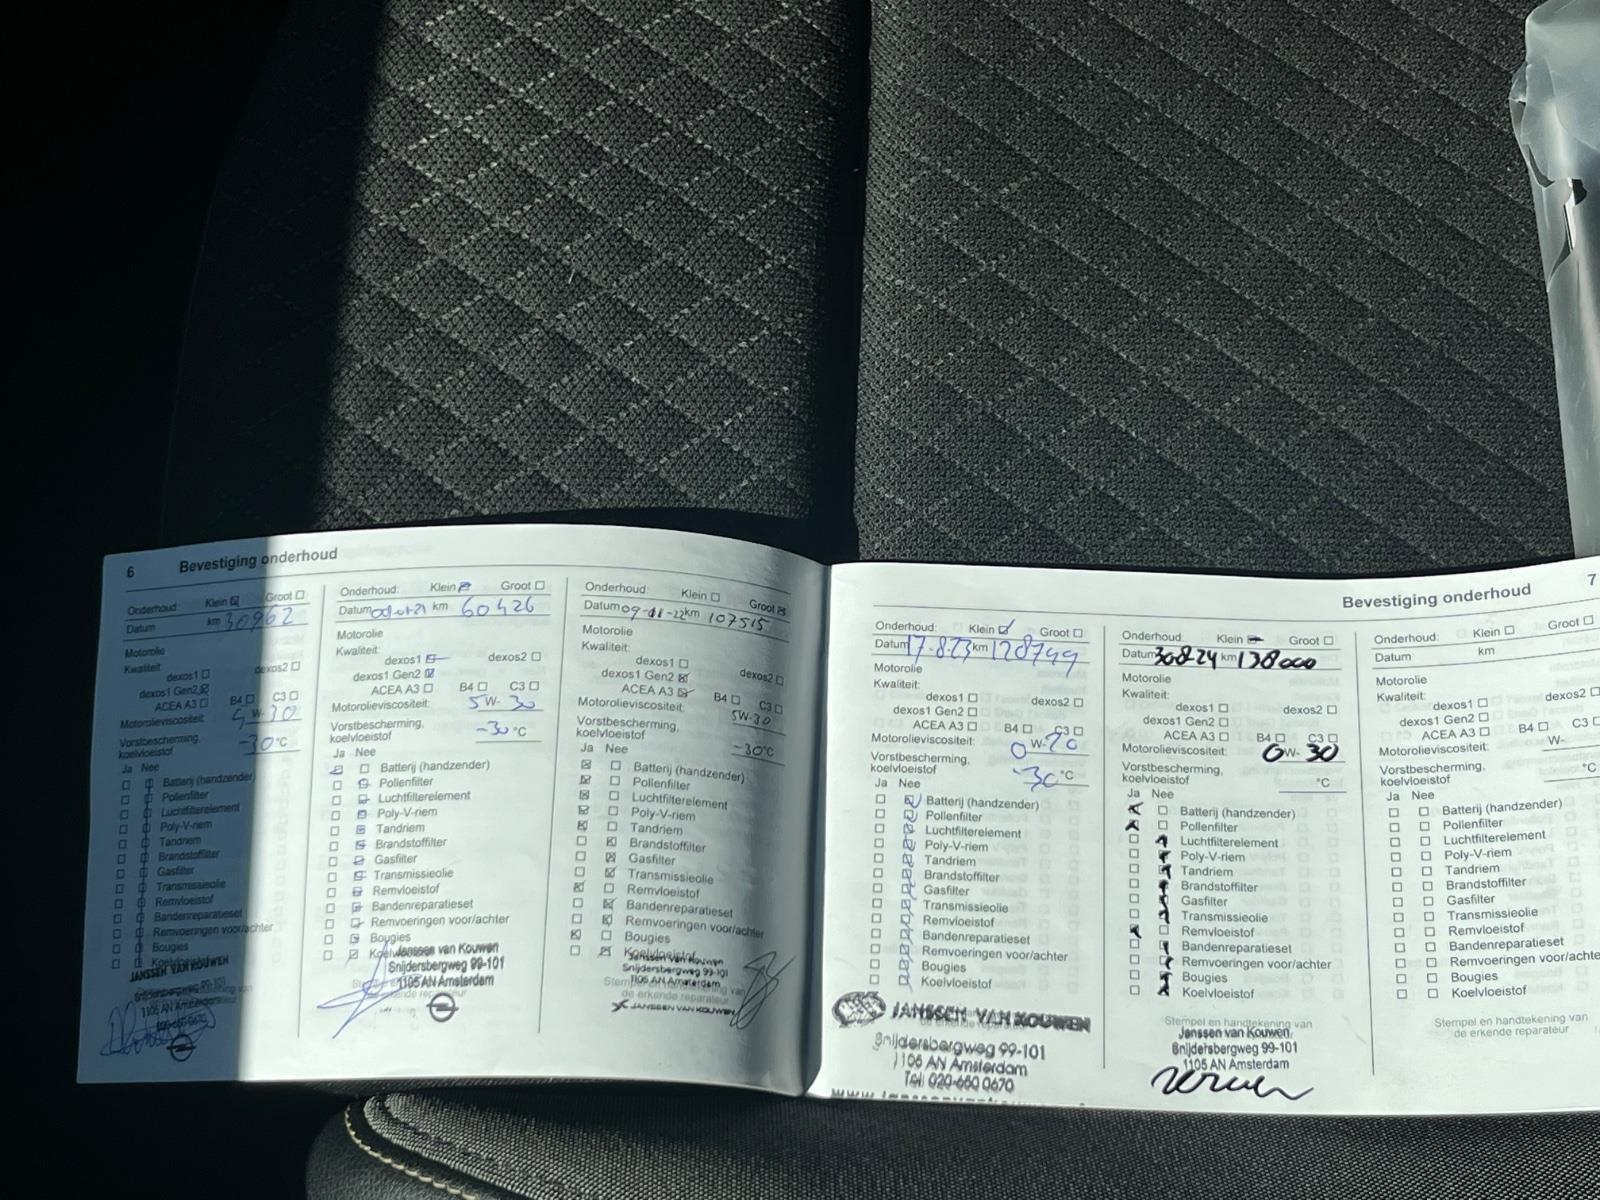 6 Bevestiging onderhoud
Onderhoud: Klein Groot
Datum km 30962
Motorolie
Kwaliteit:
dexos1 dexos2
dexos1 Gen2
ACEA A3 B4 C3
Motorolieviscositeit: 5 W-30
Vorstbescherming,
koelvloeistof -30 °C
Ja Nee
Batterij (handzender)
Pollenfilter
Luchtfilterelement
Poly-V-riem
Tandriem
Brandstoffilter
Gasfilter
Transmissieolie
Remvloeistof
Bandenreparatieset
Remvoeringen voor/achter
Bougies
Koelvloeistof
JANSSEN VAN KOUWEN
Snijdersbergweg 99-101
1105 AN Amsterdam
020-650 0670
Onderhoud: Klein Groot
Datum km 60426
Motorolie
Kwaliteit:
dexos1 dexos2
dexos1 Gen2
ACEA A3 B4 C3
Motorolieviscositeit: 5 W- 30
Vorstbescherming,
koelvloeistof -30 °C
Ja Nee
Batterij (handzender)
Pollenfilter
Luchtfilterelement
Poly-V-riem
Tandriem
Brandstoffilter
Gasfilter
Transmissieolie
Remvloeistof
Bandenreparatieset
Remvoeringen voor/achter
Bougies
Koelvloeistof
Janssen van Kouwen
Snijdersbergweg 99-101
1105 AN Amsterdam
de erkende reparateur
Onderhoud: Klein Groot
Datum 09-11-22 km 107515
Motorolie
Kwaliteit:
dexos1 dexos2
dexos1 Gen2
ACEA A3 B4 C3
Motorolieviscositeit: 5W-30
Vorstbescherming,
koelvloeistof -30°C
Ja Nee
Batterij (handzender)
Pollenfilter
Luchtfilterelement
Poly-V-riem
Tandriem
Brandstoffilter
Gasfilter
Transmissieolie
Remvloeistof
Bandenreparatieset
Remvoeringen voor/achter
Bougies
Koelvloeistof
Janssen van Kouwen
Snijdersbergweg 99-101
1105 AN Amsterdam
de erkende reparateur
JANSSEN VAN KOUWEN
Bevestiging onderhoud 7
Onderhoud: Klein Groot
Datum 17-8-23 km 128799
Motorolie
Kwaliteit:
dexos1 dexos2
dexos1 Gen2
ACEA A3 B4 C3
Motorolieviscositeit: 0 W-20
Vorstbescherming,
koelvloeistof -30 °C
Ja Nee
Batterij (handzender)
Pollenfilter
Luchtfilterelement
Poly-V-riem
Tandriem
Brandstoffilter
Gasfilter
Transmissieolie
Remvloeistof
Bandenreparatieset
Remvoeringen voor/achter
Bougies
Koelvloeistof
JANSSEN VAN KOUWEN
Snijdersbergweg 99-101
1105 AN Amsterdam
Tel: 020-650 0670
Onderhoud: Klein Groot
Datum 30-8-24 km 138000
Motorolie
Kwaliteit:
dexos1 dexos2
dexos1 Gen2
ACEA A3 B4 C3
Motorolieviscositeit: 0W- 30
Vorstbescherming,
koelvloeistof °C
Ja Nee
Batterij (handzender)
Pollenfilter
Luchtfilterelement
Poly-V-riem
Tandriem
Brandstoffilter
Gasfilter
Transmissieolie
Remvloeistof
Bandenreparatieset
Remvoeringen voor/achter
Bougies
Koelvloeistof
Stempel en handtekening van
Janssen van Kouwen
Snijdersbergweg 99-101
1105 AN Amsterdam
Onderhoud: Klein Groot
Datum km
Motorolie
Kwaliteit:
dexos1 dexos2
dexos1 Gen2
ACEA A3 B4 C3
Motorolieviscositeit: W-
Vorstbescherming,
koelvloeistof °C
Ja Nee
Batterij (handzender)
Pollenfilter
Luchtfilterelement
Poly-V-riem
Tandriem
Brandstoffilter
Gasfilter
Transmissieolie
Remvloeistof
Bandenreparatieset
Remvoeringen voor/achte
Bougies
Koelvloeistof
Stempel en handtekening van
de erkende reparateur